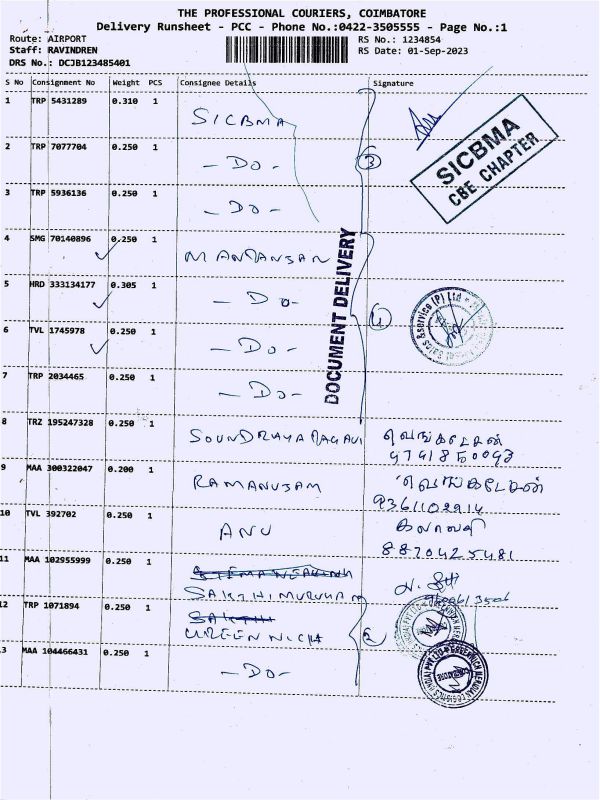 THE PROFESSIONAL COURIERS, COIMBATORE
Delivery Runsheet - PCC - Phone No.:0422-3505555 - Page No.:1
Route: AIRPORT
RS No.: 1234854
Staff: RAVINDREN
RS Date: 01-Sep-2023
DRS No.: DCJB123485401
S No Consignment No Weight PCS Consignee Details Signature
1 TRP 5431289 0.310 1
SICBMA
SICBMA
CBE CHAPTER
2 TRP 7077704 0.250 1
- DO -
3
3 TRP 5936136 0.250 1
- DO -
4 SMG 70140896 0.250 1
DOCUMENT DELIVERY
5 HRD 333134177 0.305 1
- DO -
4
6 TVL 1745978 0.250 1
- DO -
7 TRP 2034465 0.250 1
- DO -
8 TRZ 195247328 0.250 1
வெங்கடேசன்
9 MAA 300322047 0.200 1
RAMANUJAM
வெங்கடேசன்
10 TVL 392702 0.250 1
ANU
8870425481
11 MAA 102955999 0.250 1
SAKTHIMURUGAN
12 TRP 1071894 0.250 1
2
3 MAA 104466431 0.250 1
- DO -